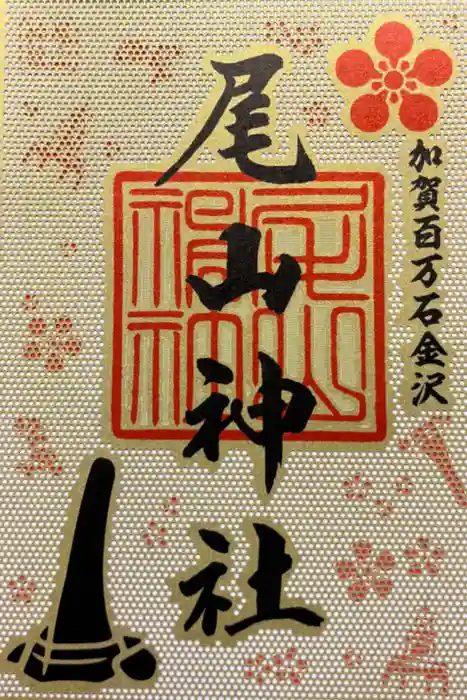 加賀百万石金沢
尾山神社
尾山神社